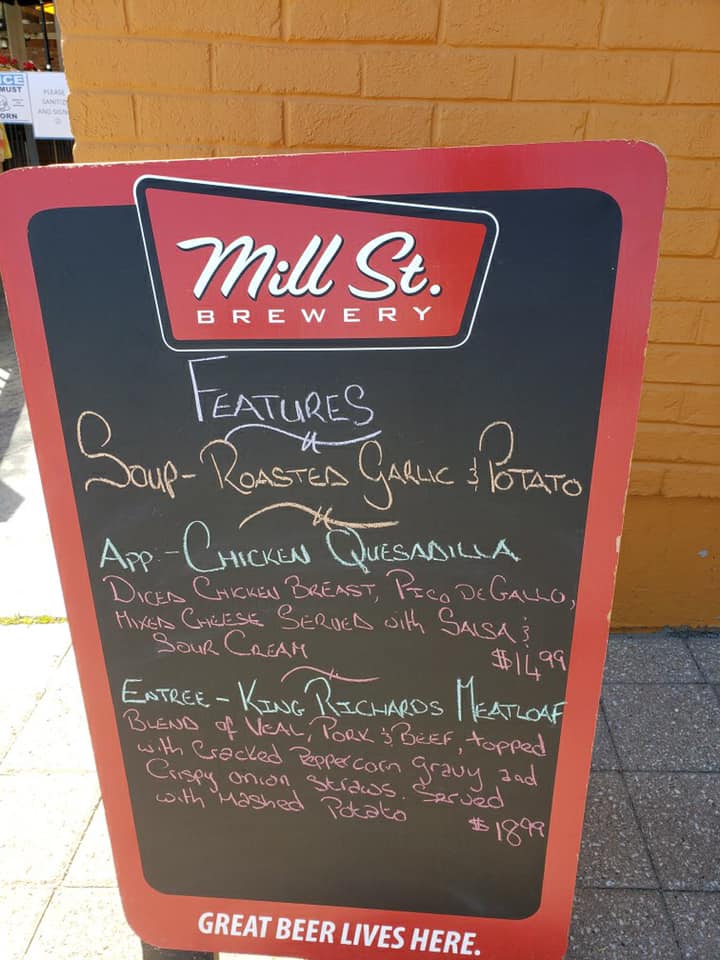 CE
MUST
ORN
PLEASE
SANITIZE
AND SIGN
Mill St.
BREWERY
FEATURES
SOUP - ROASTED GARLIC & POTATO
APP. - CHICKEN QUESADILLA
DICED CHICKEN BREAST, PICO DE GALLO,
MIXED CHEESE SERVED with SALSA &
SOUR CREAM
$14.99
ENTREE - KING RICHARDS MEATLOAF
BLEND of VEAL, PORK & BEEF, topped
with Cracked Peppercorn gravy and
Crispy onion straws. Served
with Mashed Potato
$18.99
GREAT BEER LIVES HERE.